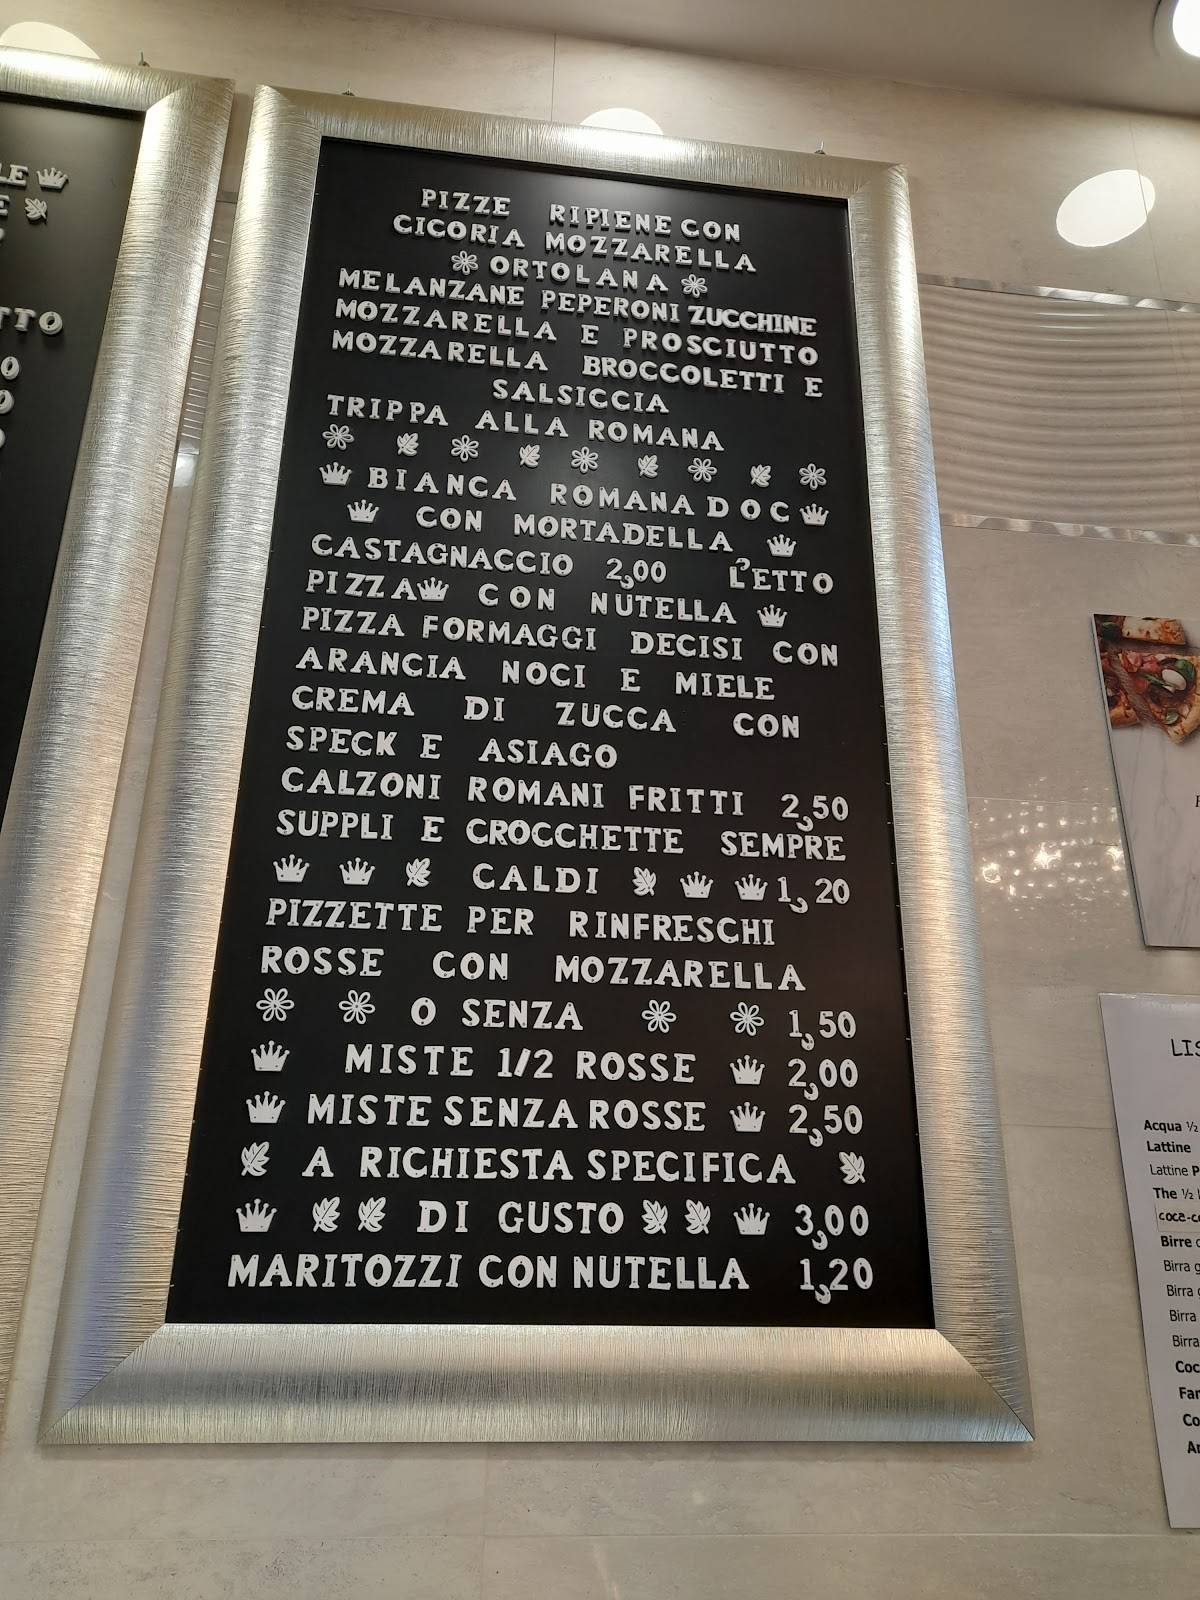 PIZZE RIPIENE CON
CICORIA MOZZARELLA
ORTOLANA
MELANZANE PEPERONI ZUCCHINE
MOZZARELLA E PROSCIUTTO
MOZZARELLA BROCCOLETTI E
SALSICCIA
TRIPPA ALLA ROMANA
BIANCA ROMANA DOC
CON MORTADELLA
CASTAGNACCIO 2,00 L'ETTO
PIZZA CON NUTELLA
PIZZA FORMAGGI DECISI CON
ARANCIA NOCI E MIELE
CREMA DI ZUCCA CON
SPECK E ASIAGO
CALZONI ROMANI FRITTI 2,50
SUPPLI E CROCCHETTE SEMPRE
CALDI 1,20
PIZZETTE PER RINFRESCHI
ROSSE CON MOZZARELLA
O SENZA 1,50
MISTE 1/2 ROSSE 2,00
MISTE SENZA ROSSE 2,50
A RICHIESTA SPECIFICA
DI GUSTO 3,00
MARITOZZI CON NUTELLA 1,20
Acqua ½
Lattine
Lattine
The ½
Birre
Birra
Birra
Birra
Birra